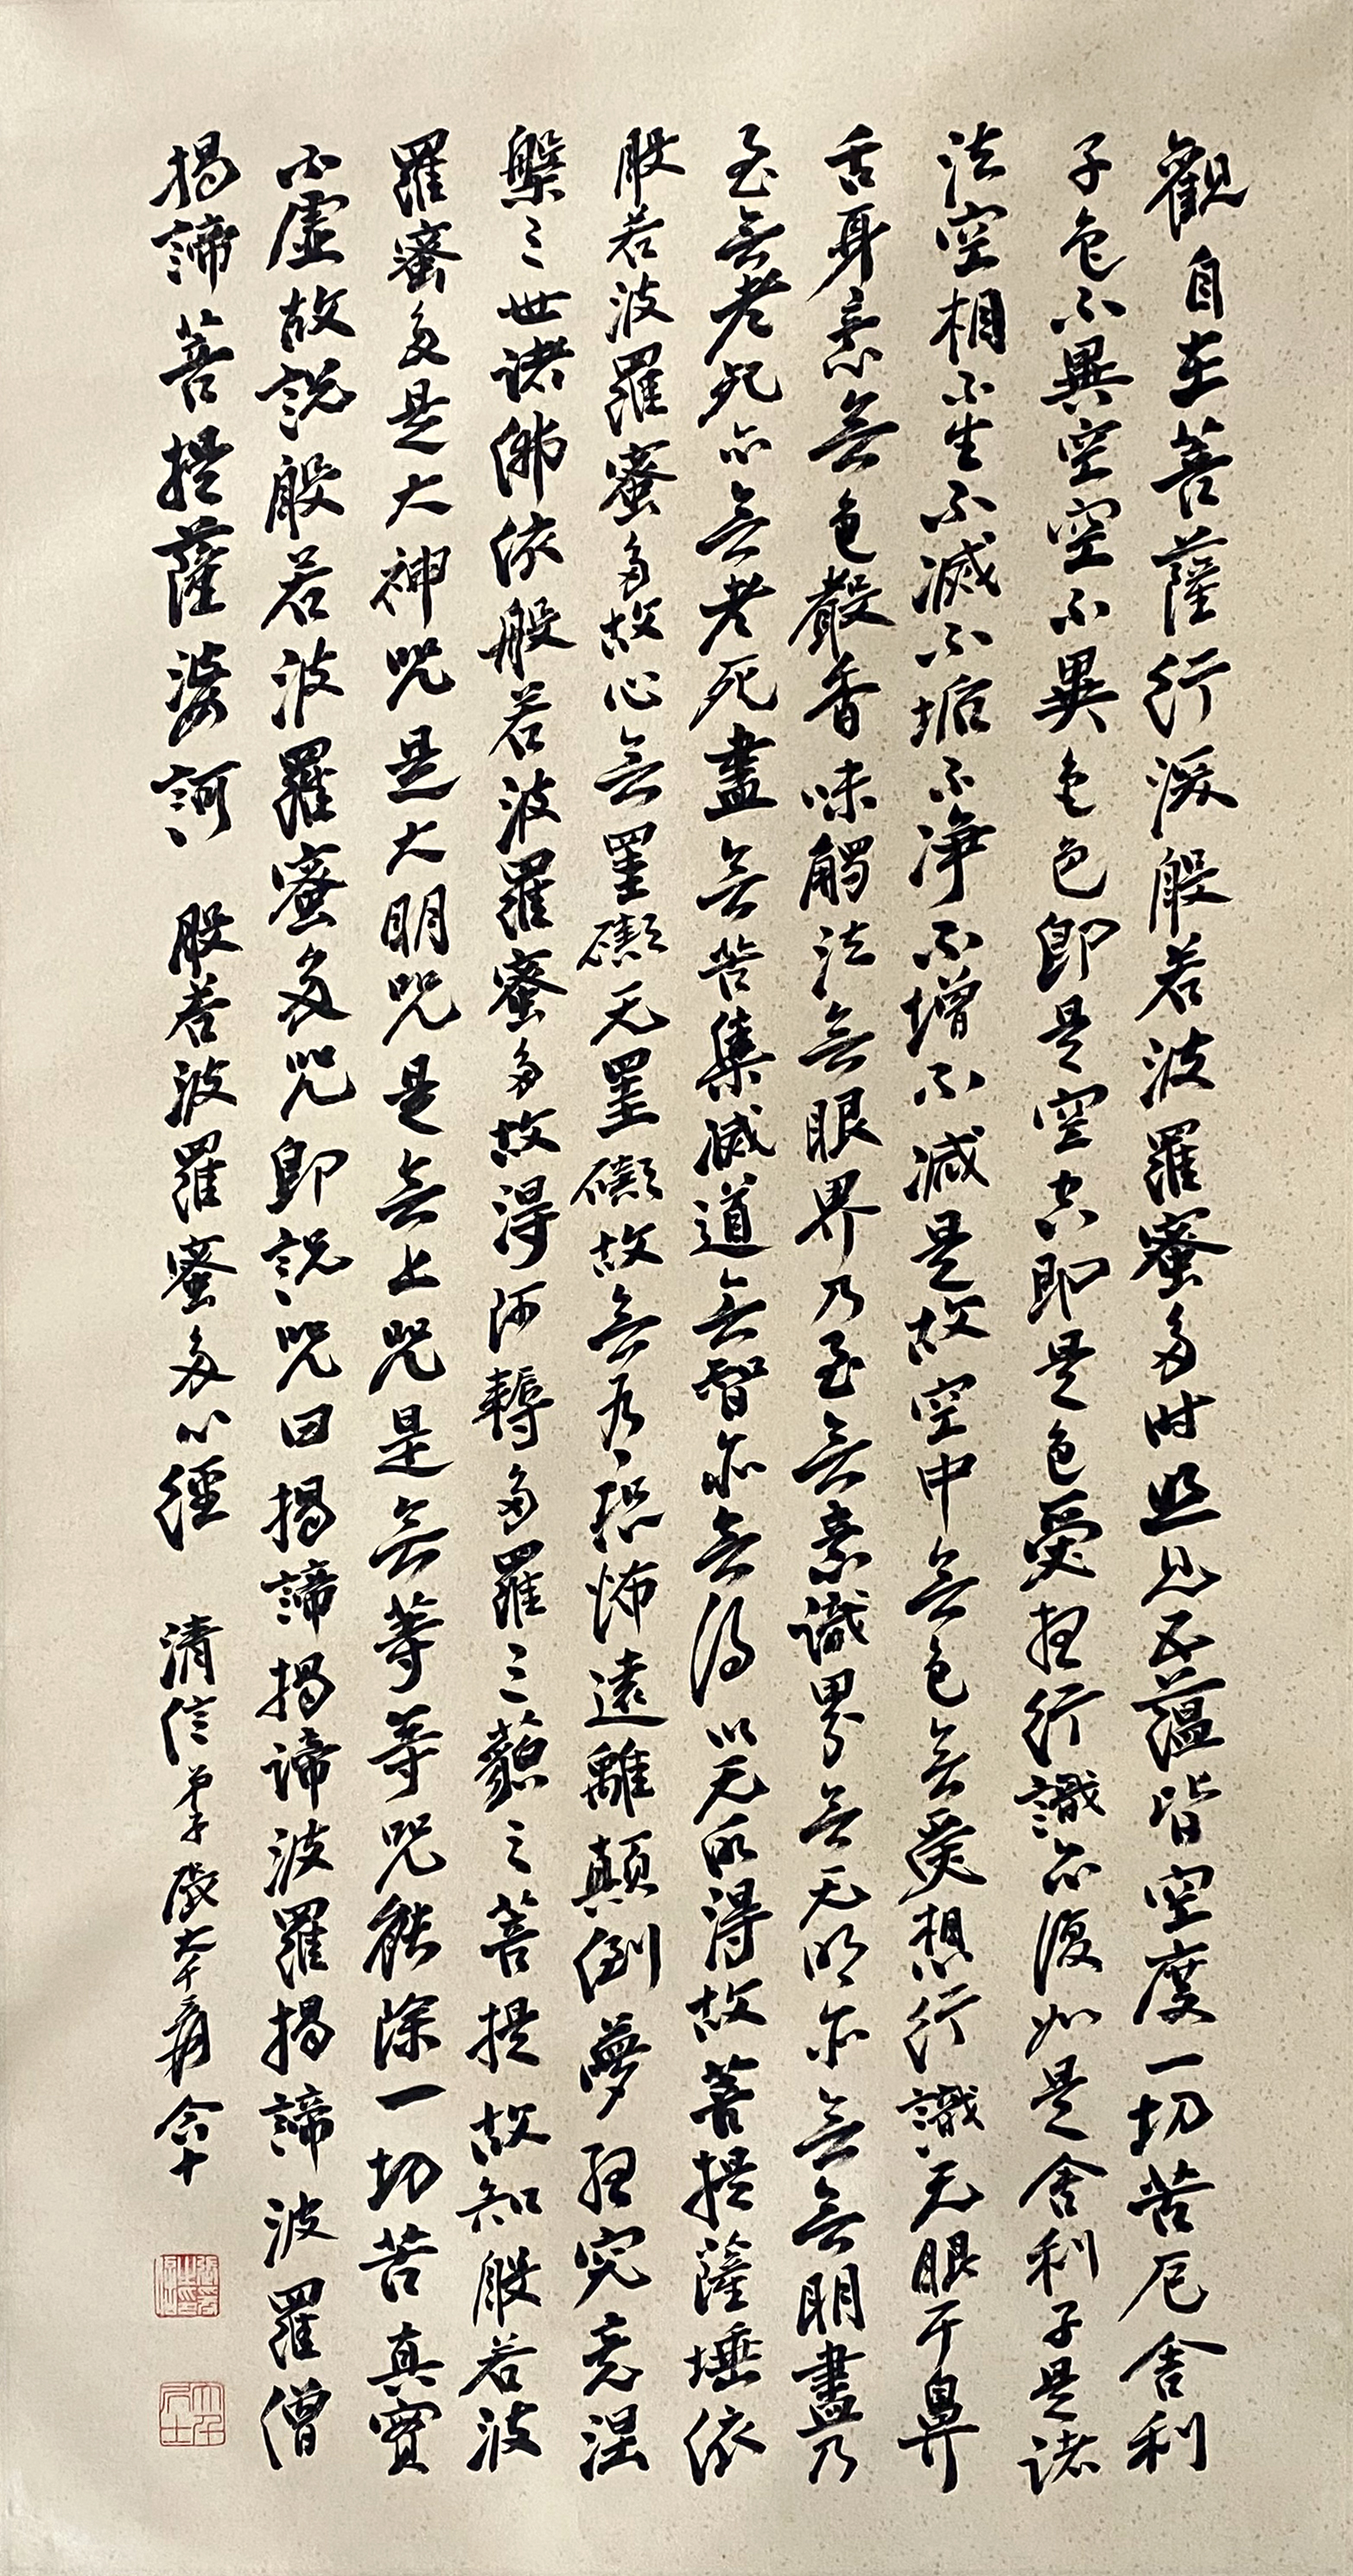 觀自在菩薩行深般若波羅蜜多時照見五蘊皆空度一切苦厄舍利
子色不異空空不異色色即是空空即是色受想行識亦復如是舍利子是諸
法空相不生不滅不垢不淨不增不減是故空中無色無受想行識无眼耳鼻
舌身意無色聲香味觸法無眼界乃至無意識界無无明亦無無明盡乃
至無老死亦無老死盡無苦集滅道無智亦無得以无所得故菩提薩埵依
般若波羅蜜多故心無罣礙无罣礙故無有恐怖遠離顛倒夢想究竟涅
槃三世諸佛依般若波羅蜜多故得阿耨多羅三藐三菩提故知般若波
羅蜜多是大神咒是大明咒是無上咒是無等等咒能除一切苦真實
不虛故說般若波羅蜜多咒即說咒曰揭諦揭諦波羅揭諦波羅僧
揭諦菩提薩婆訶 般若波羅蜜多心經 清信弟子 大千爰